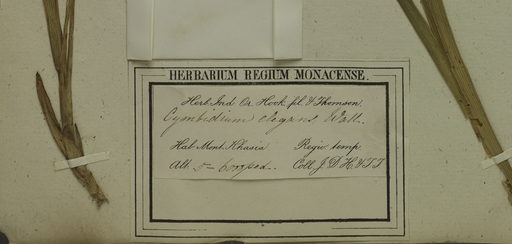 HERBARIUM REGIUM MONACENSE.
Herb. Ind. Or. Hook. fil. & Thomson.
Cymbidium elegans Wall.
Hab. Mont. Khasia Regio temp.
Alt. 5-6000 ped. Coll. J. D. H. & T. T.